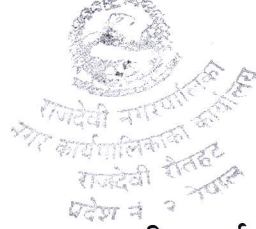 राजदेवी नगरपालिका
नगर कार्यपालिकाको कार्यालय
राजदेवी रौतहट
प्रदेश नं २ नेपाल